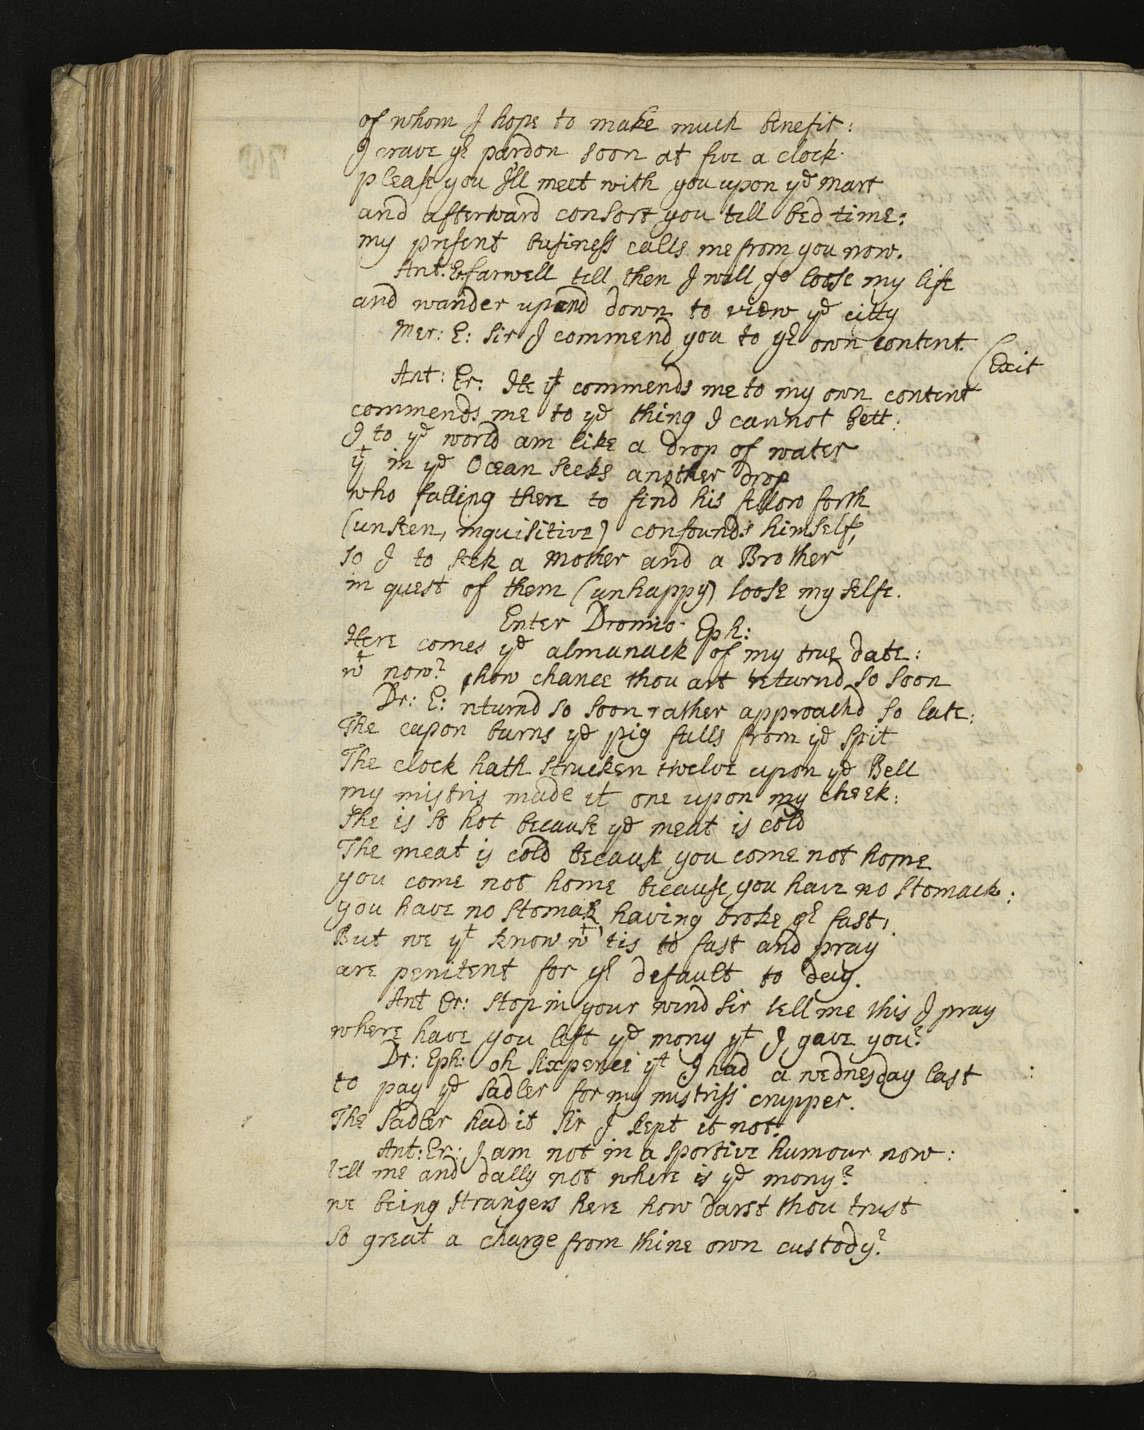 of whom I hope to make much benefit:
I crave yr pardon soon at five a clock.
please you I'll meet with you upon ye Mart
and afterward consort you till bed time:
my present business calls me from you now.
Ant: E: farwell till then I will go loose my life
and wander up and down to view ye citty
Mer: E: Sir I commend you to yr own content.
(Exit
Ant: Er: He yt commends me to my own content
commends me to ye thing I cannot gett:
I to ye world am like a drop of water
yt in ye Ocean seeks another drop
who falling there to find his fellow forth
(unseen, inquisitive) confounds himself,
so I to seek a Mother and a Brother
in quest of them (unhappy) loose my selfe.
Enter Dromio Eph:
Here comes ye almanack of my true date:
wt now? how chance thou art returnd so soon
Dr: E: returnd so soon rather approachd so late:
The capon burns ye pig falls from ye spit
The clock hath strucken twelve upon ye Bell
my mistris made it one upon my cheek:
she is so hot because ye meat is cold
The meat is cold because you come not home
you come not home because you have no stomack:
you have no stomak having broke yr fast:
But we yt know wt 'tis to fast and pray
are penitent for yr default to day.
Ant Er: stop in your wind sir tell me this I pray
where have you left ye mony yt I gave you?
Dr: Eph: oh sixpence yt I had a wednesday last
to pay ye sadler for my mistriss crupper.
The sadler had it sir I kept it not.
Ant: Er: I am not in a sportive humour now:
tell me and dally not where is ye mony?
we being strangers here how darst thou trust
so great a charge from thine own custody?